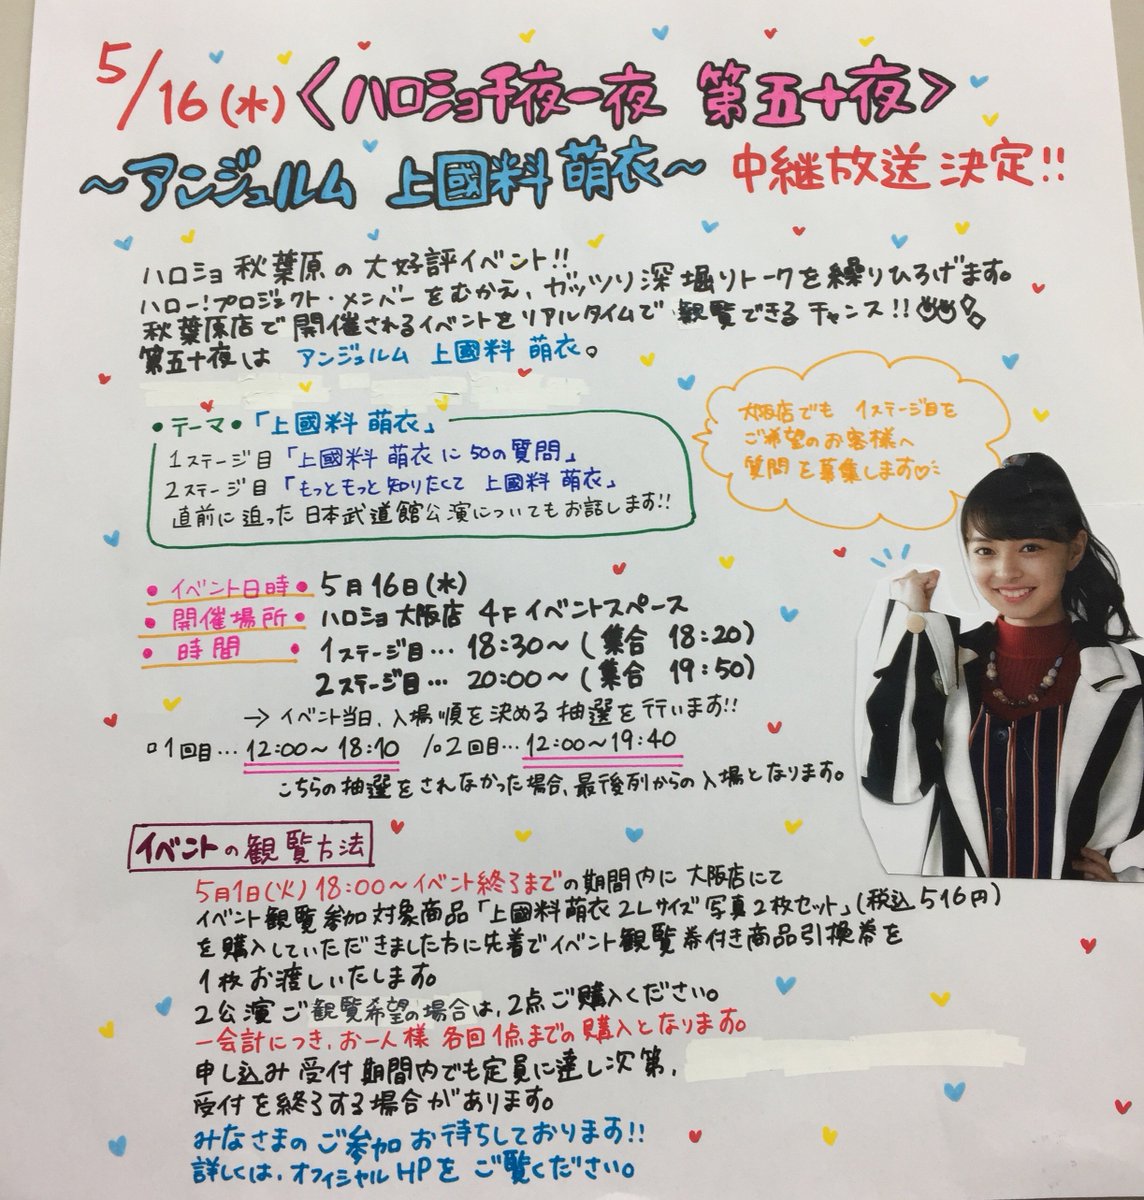 5/16(水)〈ハロショ千夜一夜 第五十夜〉
～アンジュルム 上國料 萌衣～ 中継放送決定!!
ハロショ 秋葉原の大好評イベント!!
ハロー!プロジェクト・メンバーをむかえ、ガッツリ深堀りトークを繰りひろげます。
秋葉原店で開催されるイベントをリアルタイムで観覧できるチャンス!!
第五十夜は アンジュルム 上國料 萌衣。
大阪店でも 1ステージ目を
ご希望のお客様へ
質問を募集します♡
•テーマ•「上國料 萌衣」
1ステージ目「上國料 萌衣に50の質問」
2ステージ目「もっともっと知りたくて 上國料 萌衣」
直前に迫った日本武道館公演についてもお話します!!
•イベント日時• 5月16日(水)
•開催場所• ハロショ大阪店 4Fイベントスペース
•時間• 1ステージ目… 18:30～(集合 18:20)
2ステージ目… 20:00～(集合 19:50)
→イベント当日、入場順を決める抽選を行います!!
□1回目…12:00～18:10 /□2回目…12:00～19:40
こちらの抽選をされなかった場合、最後列からの入場となります。
イベントの観覧方法
5月1日(火)18:00～イベント終了までの期間内に大阪店にて
イベント観覧参加対象商品「上國料萌衣2Lサイズ写真2枚セット」(税込516円)
を購入していただきました方に先着でイベント観覧券付き商品引換券を
1枚お渡しいたします。
2公演ご観覧希望の場合は、2点ご購入ください。
一会計につき、お一人様 各回1点までの購入となります。
申し込み受付期間内でも定員に達し次第、
受付を終了する場合があります。
みなさまのご参加お待ちしております!!
詳しくは、オフィシャルHPをご覧ください。